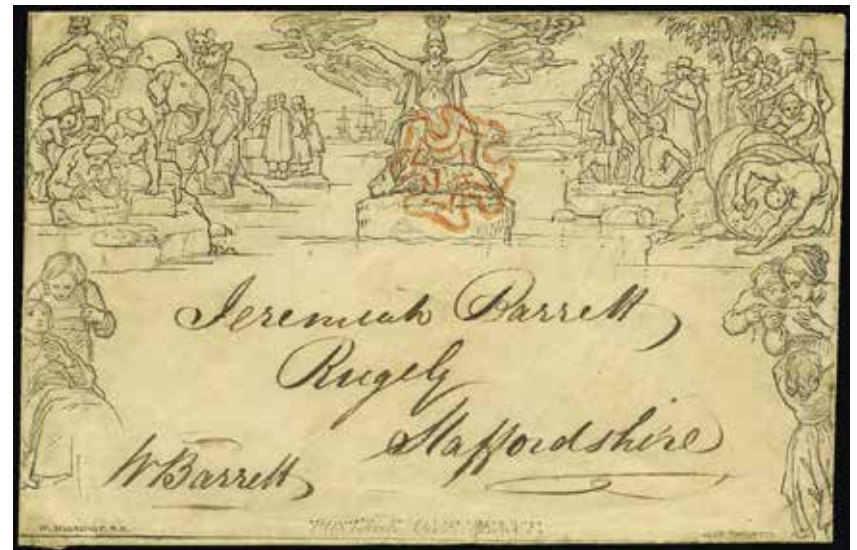 Jeremiah Barrett
Rugely
Staffordshire
W Barrett
W. MULREADY, R.A.
POSTAGE